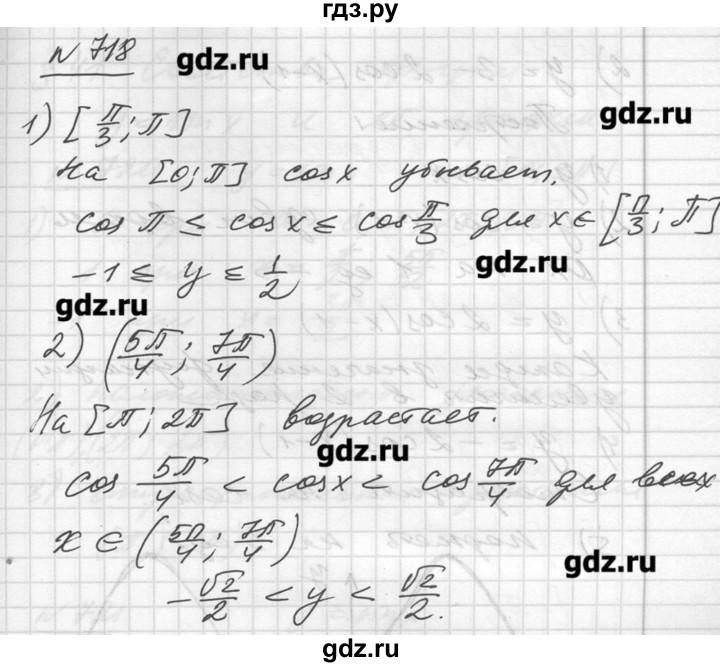 гдз.ру
№ 718
gdz.ru
1) [π/3; π]
gdz.ru
На [0; π] cos x убывает.
cos π ≤ cos x ≤ cos π/3 для x ∈ [π/3; π]
-1 ≤ y ≤ 1/2
gdz.ru
gdz.ru
2) (5π/4; 7π/4)
На [π; 2π] возрастает.
gdz.ru
cos 5π/4 < cos x < cos 7π/4 для всех
x ∈ (5π/4; 7π/4)
gdz.ru
-√2/2 < y < √2/2.
gdz.ru